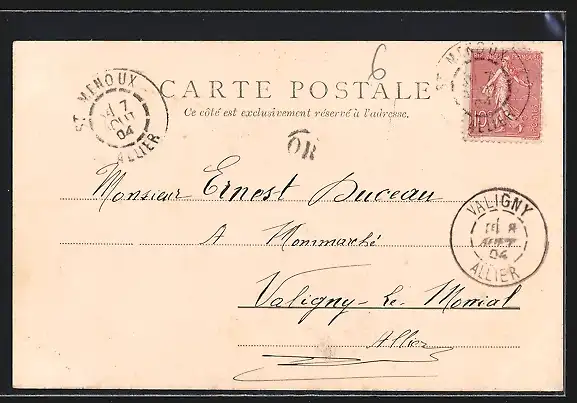 6
CARTE POSTALE
Ce côté est exclusivement réservé à l'adresse.
ST MENOUX
7
AOUT
04
ALLIER
ST MENOUX
7
ALLIER
10
OR
Monsieur Ernest Duceau
A Mommarché
Valigny-le-Monial
Allier
VALIGNY
8
AOUT
04
ALLIER